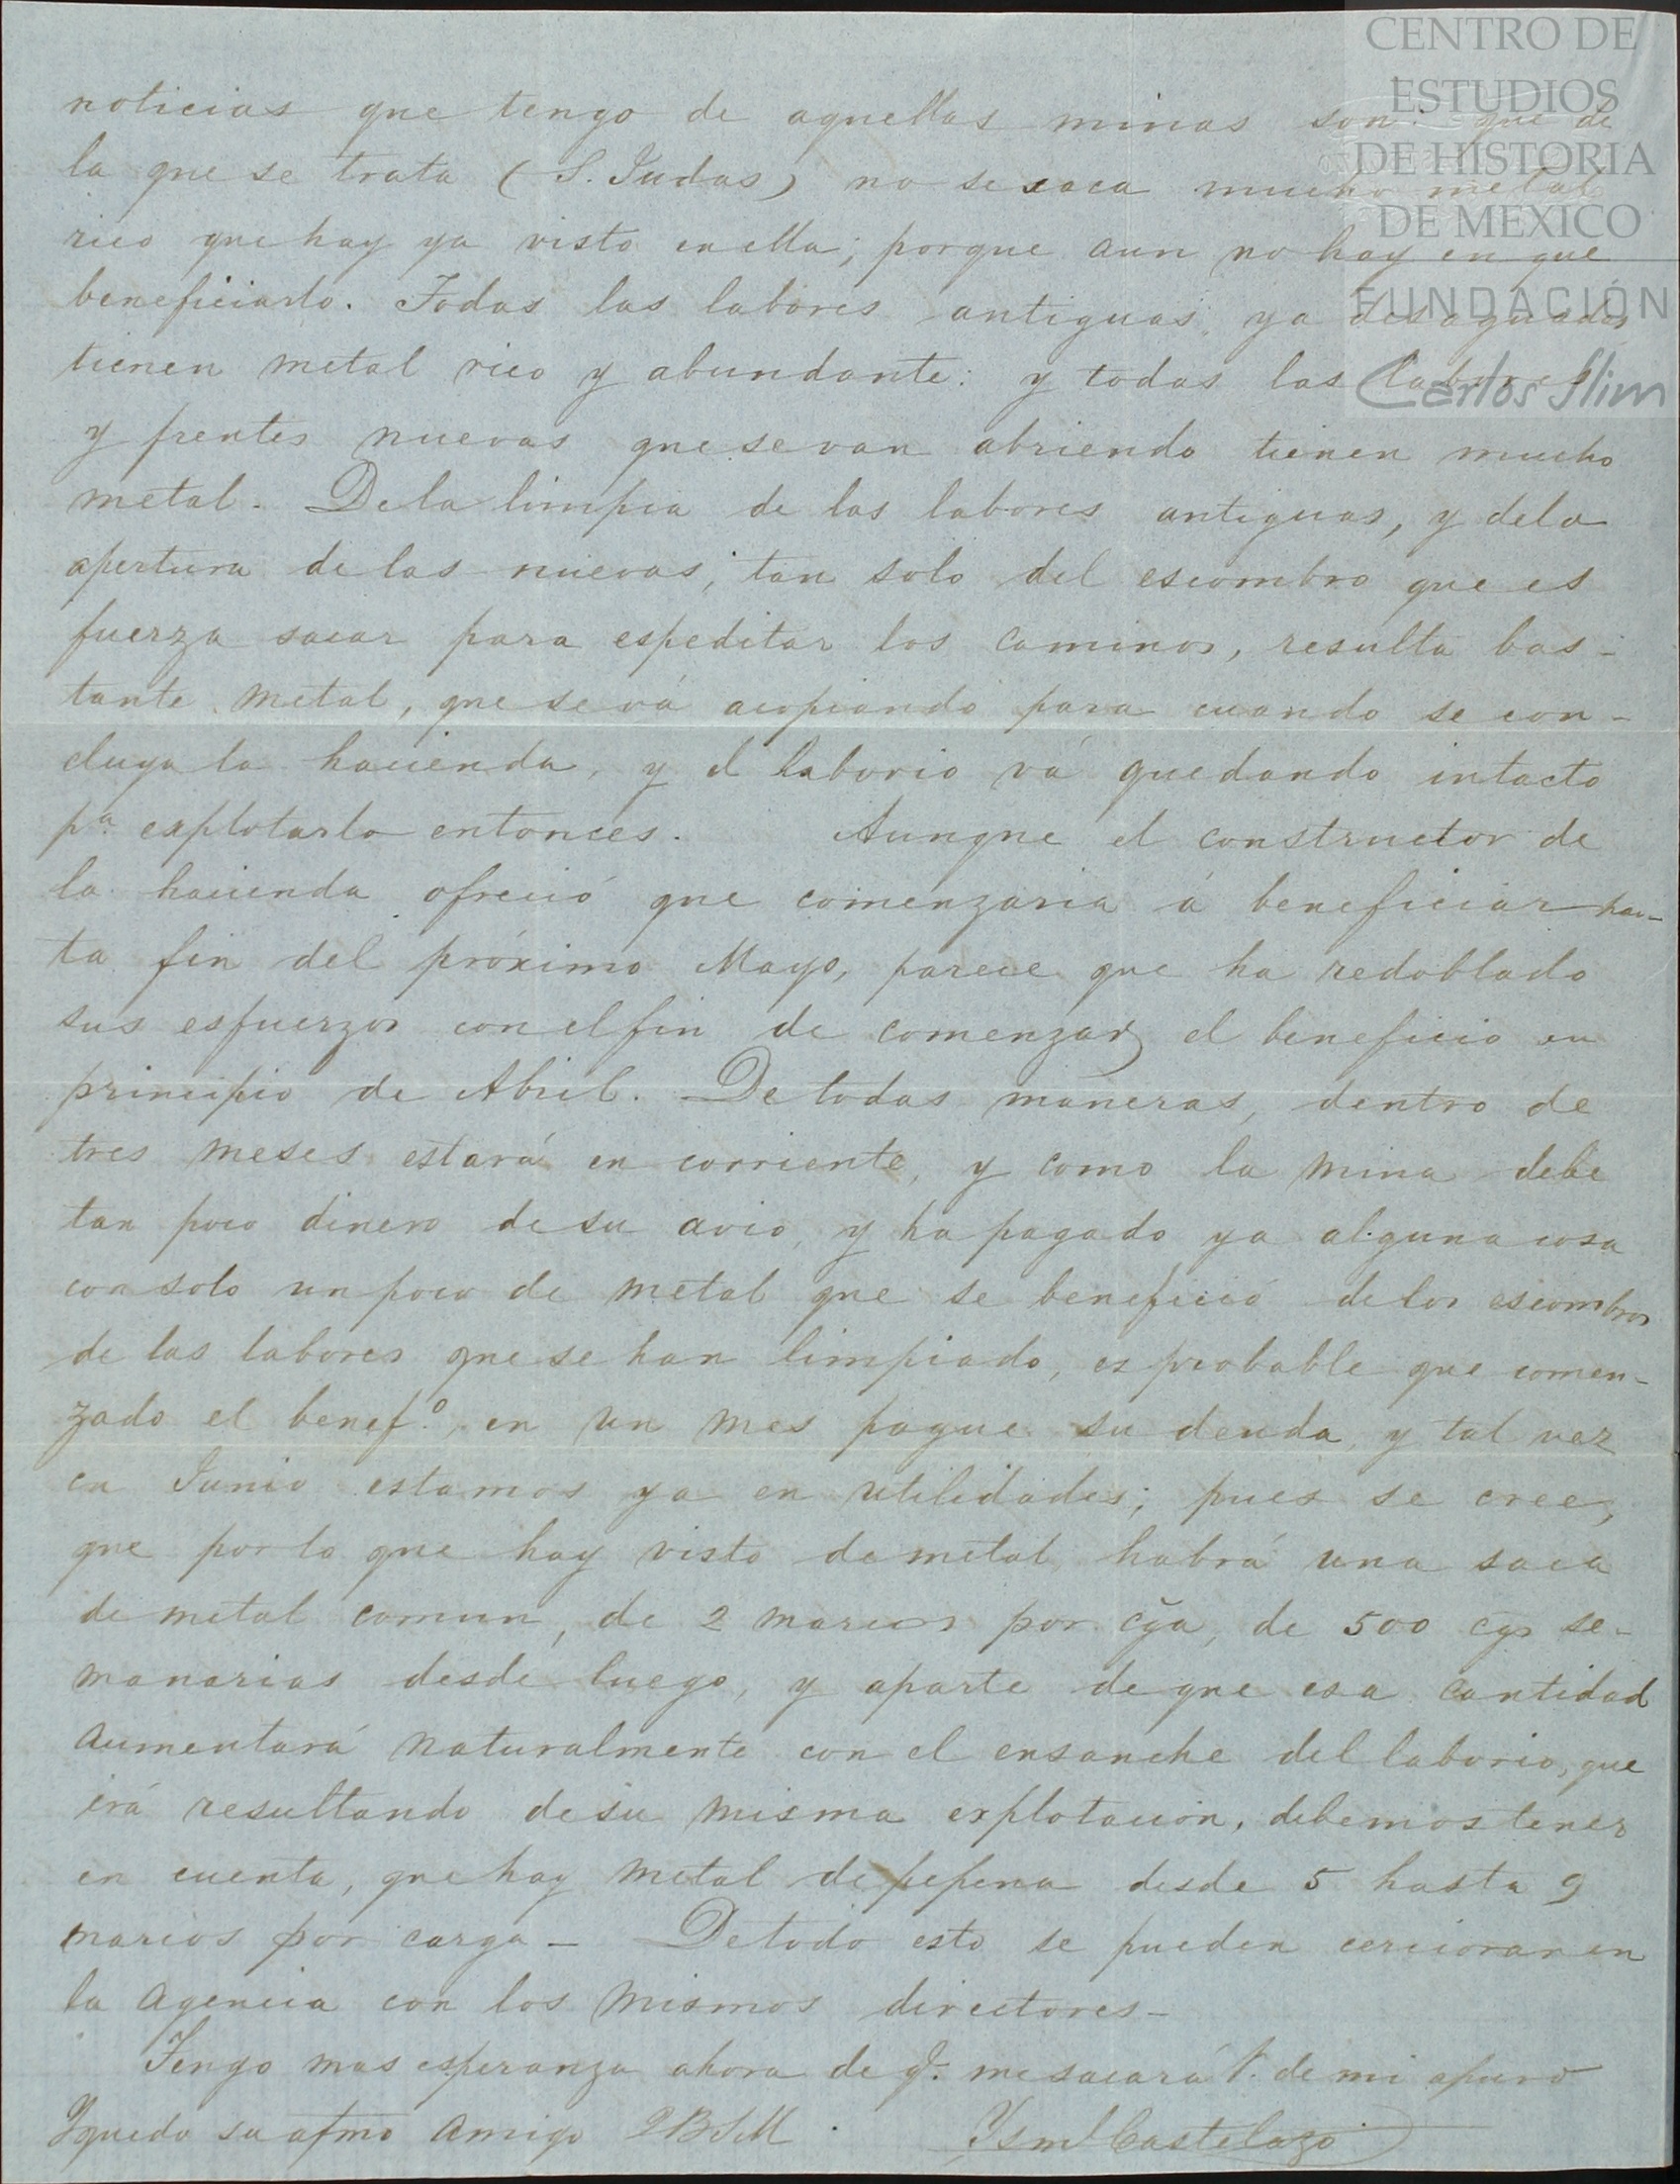 CENTRO DE
ESTUDIOS
DE HISTORIA
DE MEXICO
FUNDACIÓN
Carlos Slim
noticias que tengo de aquellas minas son: que de
la que se trata (S. Judas) no se saca mucho metal
rico que hay ya visto en ella; porque aun no hay en que
beneficiarlo. Todas las labores antiguas ya desaguadas
tienen metal rico y abundante: y todas las labores
y frentes nuevas que se van abriendo tienen mucho
metal. De la limpia de las labores antiguas, y de la
apertura de las nuevas, tan solo del escombro que es
fuerza sacar para espeditar los caminos, resulta bas-
tante metal, que se vá acopiando para cuando se con-
cluya la hacienda, y el laborio vá quedando intacto
pª explotarlo entonces. Aunque el constructor de
la hacienda ofreció que comenzaria á beneficiar has-
ta fin del próximo Mayo, parece que ha redoblado
sus esfuerzos con el fin de comenzar el beneficio en
principio de Abril. De todas maneras, dentro de
tres meses estará en corriente, y como la mina debe
tan poco dinero de su avio, y ha pagado ya alguna cosa
con solo un poco de metal que se benefició de los escombros
de las labores que se han limpiado, es probable que comen-
zado el benefº, en un mes pague su deuda, y tal vez
en Junio estamos ya en utilidades; pues se cree,
que por lo que hay visto de metal, habrá una saca
de metal comun, de 2 marcos por cga, de 500 cgs se-
manarias desde luego, y aparte de que esa cantidad
aumentará naturalmente con el ensanche del laborio, que
irá resultando de su misma explotacion, debemos tener
en cuenta, que hay metal de pepena desde 5 hasta 9
marcos por carga - De todo esto se pueden cerciorar en
la Agencia con los mismos directores -
Tengo mas esperanza ahora de q. me sacará V. de mi apuro
Y quedo su afmo amigo QBSM. Ysml Castelazo